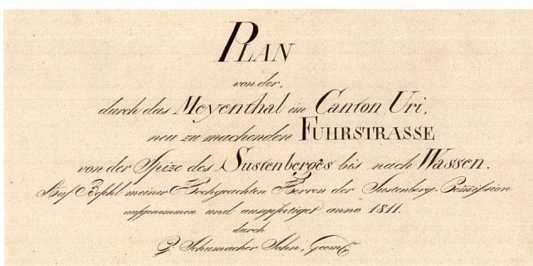 PLAN
von der,
durch das Meyenthal im Canton Uri,
neu zu machenden FUHRSTRASSE
von der Spize des Sustenberges bis nach Wassen.
Auf Befehl meiner Hochgeachten Herren der Sustenberg. Comission
aufgenommen und ausgefertiget anno 1811.
durch
Schumacher Sohn, Geom